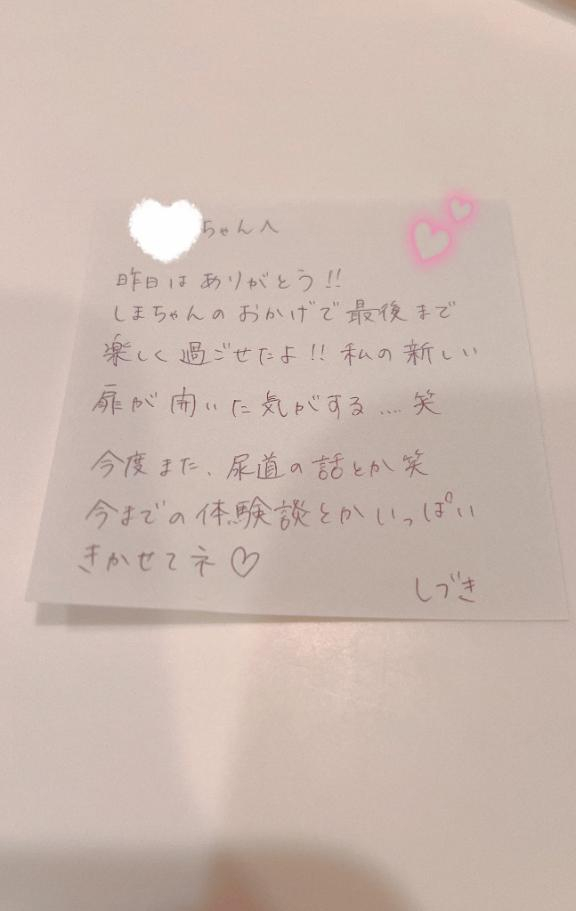 ちゃんへ
昨日はありがとう!!
しまちゃんのおかげで最後まで
楽しく過ごせたよ!! 私の新しい
扉が開いた気がする.... 笑
今度また、尿道の話とか笑
今までの体験談とかいっぱい
きかせてネ♡
しづき